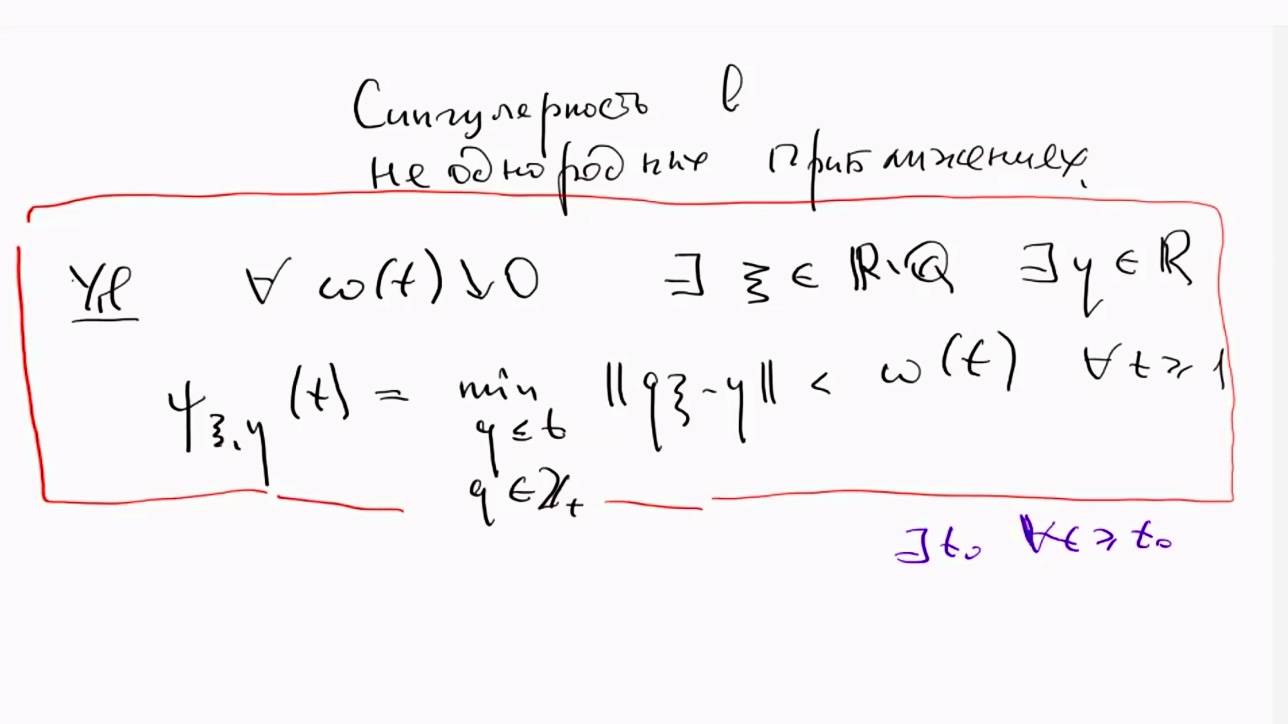 Сингулярность в
неоднородных приближениях.
Утв ∀ ω(t)↓0 ∃ ξ ∈ ℝ∖ℚ ∃ η ∈ ℝ
ψ_{ξ,η}(t) = min_{q ≤ t, q ∈ ℤ₊} ||qξ-η|| < ω(t) ∀ t ≥ 1
∃ t₀ ∀ t ≥ t₀